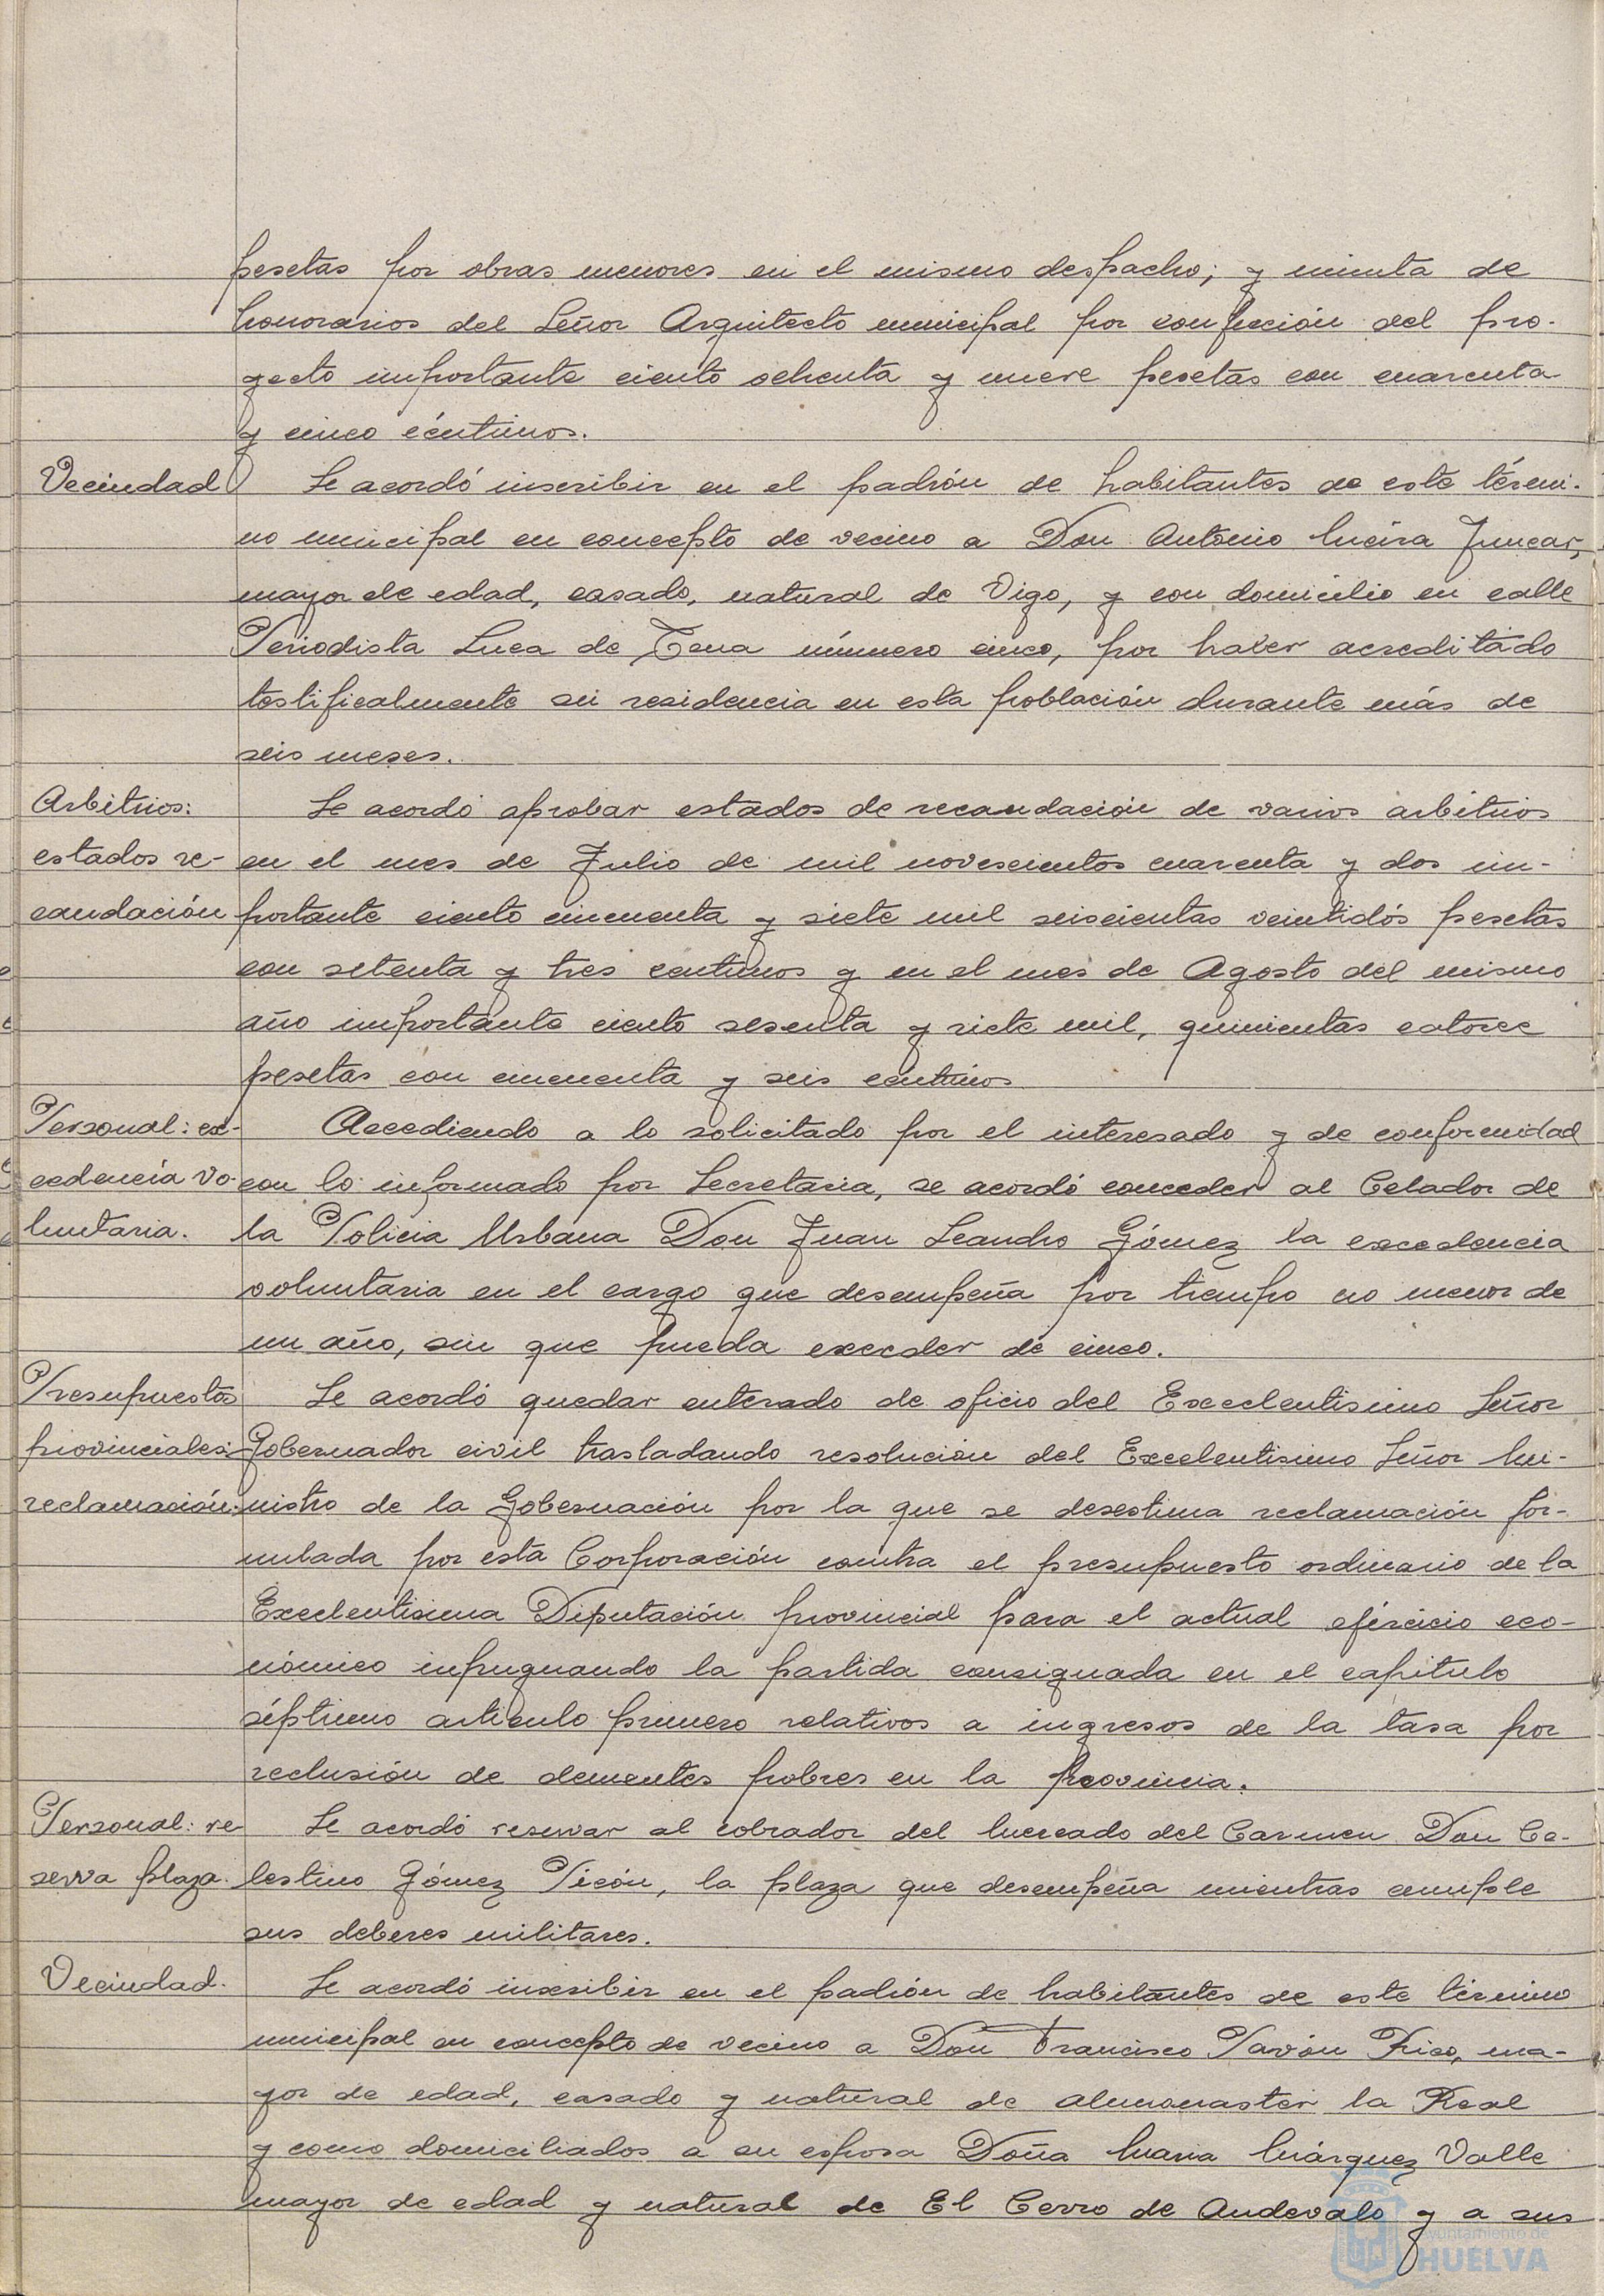 pesetas por obras menores en el mismo despacho; y minuta de
honorarios del Señor Arquitecto municipal por confección del pro-
yecto importante ciento ochenta y nueve pesetas con cuarenta
y cinco céntimos.
Vecindad Se acordó inscribir en el padrón de habitantes de este térmi-
no municipal en concepto de vecino a Don Antonio Mcira Juncar,
mayor de edad, casado, natural de Vigo, y con domicilio en calle
Periodista Luca de Tena número cinco, por haber acreditado
testificalmente su residencia en esta población durante más de
seis meses.
Arbitrios: Se acordó aprobar estados de recaudación de varios arbitrios
estados re- en el mes de Julio de mil novescientos cuarenta y dos im-
caudación portante ciento cincuenta y siete mil seiscientas veintidós pesetas
con setenta y tres centimos y en el mes de Agosto del mismo
año importante ciento sesenta y siete mil, quinientas catorce
pesetas con cincuenta y seis centimos
Personal: ex- Accediendo a lo solicitado por el interesado y de conformidad
cedencia vo- con lo informado por Secretaria, se acordó conceder al Celador de
luntaria. la Policia Urbana Don Juan Leandro Gómez la excedencia
voluntaria en el cargo que desempeña por tiempo no menor de
un año, sin que pueda exceder de cinco.
Presupuestos Se acordó quedar enterado de oficio del Excelentisimo Señor
provinciales: Gobernador civil trasladando resolución del Excelentisimo Señor Mi-
reclamación. nistro de la Gobernación por la que se desestima reclamación for-
mulada por esta Corporación contra el presupuesto ordinario de la
Excelentisima Diputación provincial para el actual ejercicio eco-
nómico inpugnando la partida consignada en el capitulo
séptimo articulo primero relativos a ingresos de la tasa por
reclusión de dementes pobres en la provincia.
Personal: re Se acordó reservar al cobrador del Mercado del Carmen Don Ce-
serva plaza. lestino Gómez Picón, la plaza que desempeña mientras cumple
sus deberes militares.
Vecindad. Se acordó inscribir en el padrón de habitantes de este término
municipal en concepto de vecino a Don Francisco Pavón Rico, ma-
yor de edad, casado y natural de Almonaster la Real
y como domiciliados a su esposa Doña Maria Márquez Valle
mayor de edad y natural de El Cerro de Andevalo y a sus
Ayuntamiento de
HUELVA